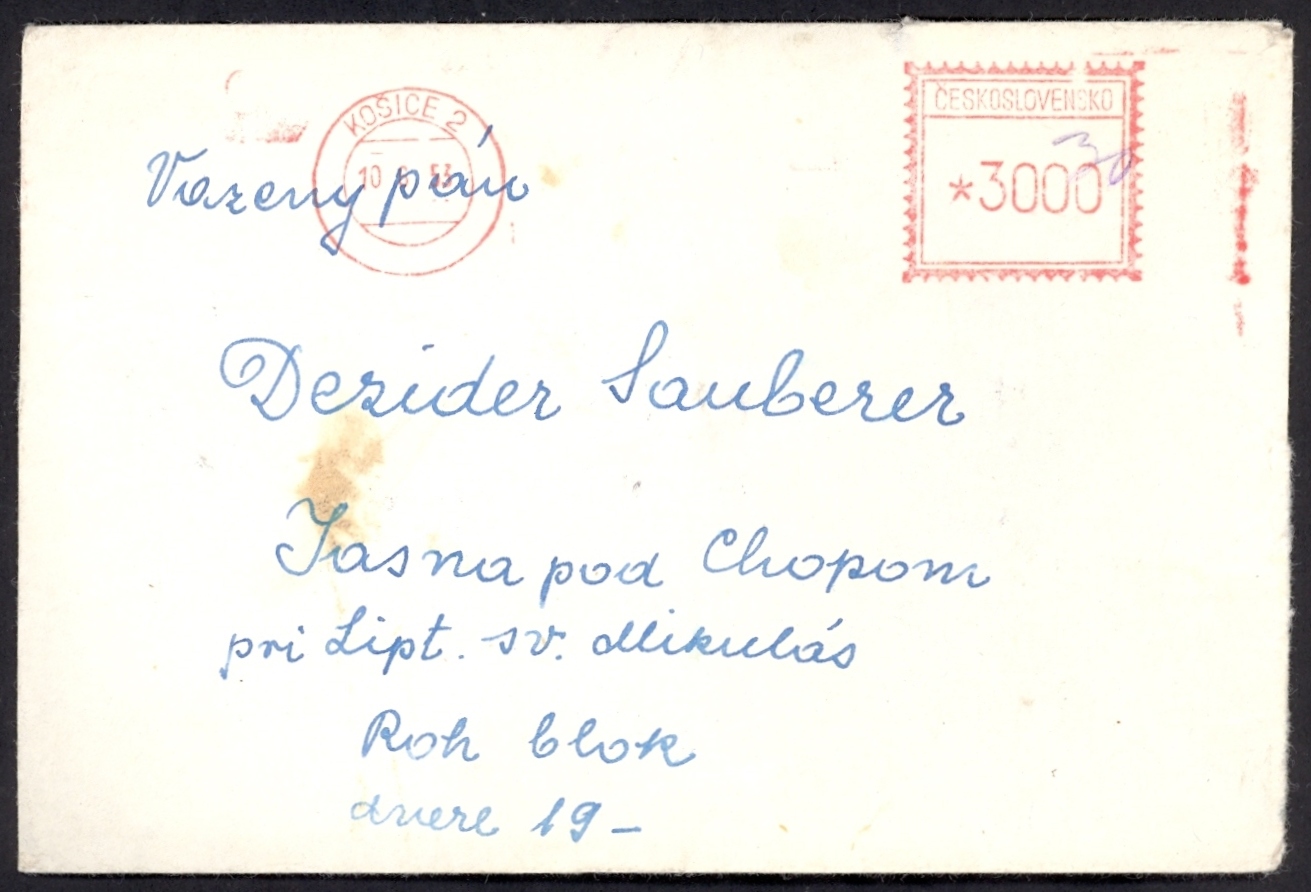 KOŠICE 2
ČESKOSLOVENSKO
10 6 53
Vazeny pán
*3000
30
Dezider Sauberer
Jasna pod Chopom
pri Lipt. sv. Mikulás
Roh blok
dvere 19 –